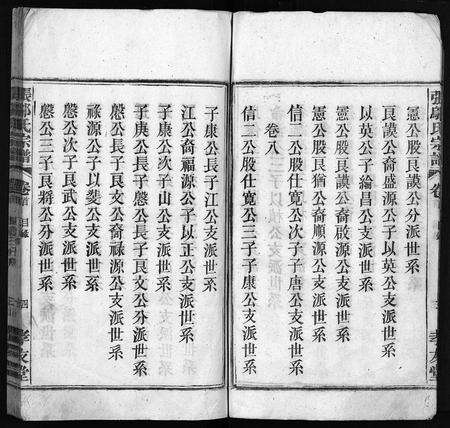 憲公股長謨公分派世系
良謨公裔盛源公子以英公支派世系
以英公子綸昌公支派世系
憲公股良謨公裔啟源公支派世系
憲公股良猶公裔順源公支派世系
信二公股仕寬公次子子唐公支派世系
卷八
信二公股仕寬公三子子康公支派世系
子康公長子江公支派世系
江公裔福源公子以正公支派世系
子康公次子山公支派世系
子庚公長子慇公長子良文公分派世系
慇公長子良文公裔祿源公支派世系
祿源公子以夔公支派世系
慇公次子良武公支派世系
慇公三子良將公分派世系
張鄢氏宗譜
卷首
目錄
四
孝友堂